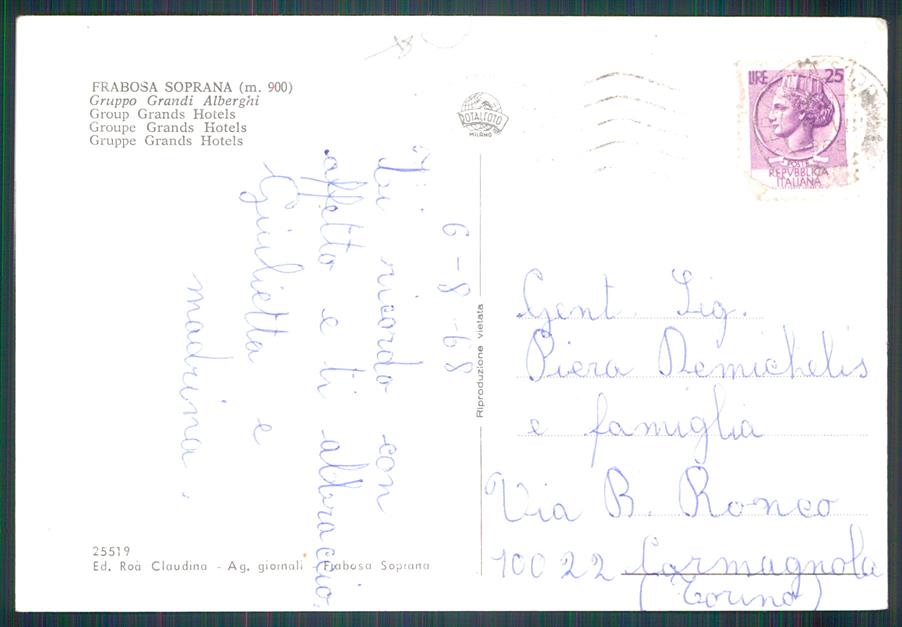 FRABOSA SOPRANA (m. 900)
Gruppo Grandi Alberghi
Group Grands Hotels
Groupe Grands Hotels
Gruppe Grands Hotels
ROTALFOTO
MILANO
LIRE 25
POSTE
REPVBBLICA
ITALIANA
6-8-68
Ti ricordo con
affetto e ti abbraccio,
Giulietta e
madrina.
Riproduzione vietata
Gent Sig.
Piera Demichelis
e famiglia
Via B. Ronco
10022 Carmagnola
(Torino)
25519
Ed. Roà Claudina - Ag. giornali Frabosa Soprana